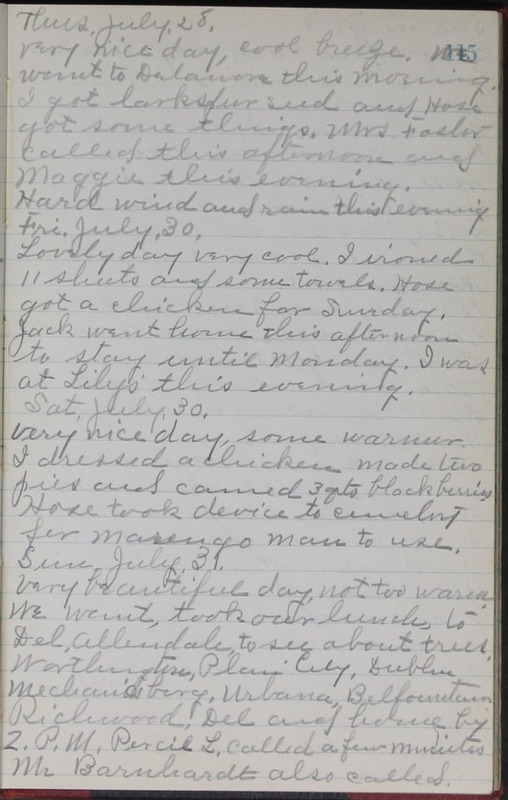 Thus, July, 28.
very nice day, cool breeze. We 115
went to Delaware this morning.
I got larkspur seed and Hose
got some things. Mrs Foster
called this afternoon and
Maggie this evening.
Hard wind and rain this evening
Fri. July, 30.
Lovely day very cool. I ironed
11 sheets and some towels. Hose
got a chicken for Sunday.
Jack went home this afternoon
to stay until Monday. I was
at Lily's this evening.
Sat, July, 30.
very nice day, some warmer.
I dressed a chicken made two
pies and canned 3 qts blackberries
Hose took device to
for marengo man to use.
Sun, July, 31.
very beautiful day, not too warm.
We went, took our lunch, to
Del, Allendale, to see about trees.
Worthington, Plain City, Dublin
Mechanicsburg, Urbana, Belfountain
Richwood, Del and home by
2. P.M. Percie L, called a few minutes
Mr Barnhardt also called.